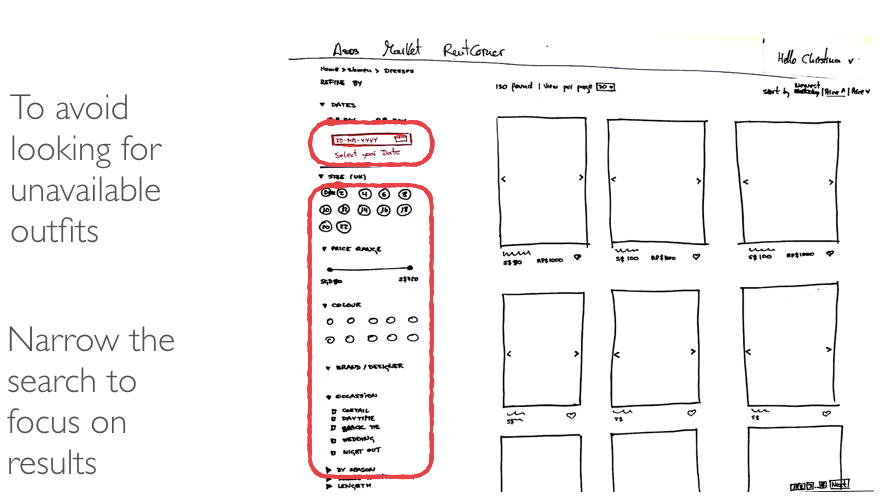 To avoid
looking for
unavailable
outfits
Narrow the
search to
focus on
results
Asos Market RentCorner
Hello Christina v
Home > Women > Dresses
REFINE BY
130 found | View per page 30
Sort by Newest | Price ^ | Price v
DATES
DD-MM-YYYY
Select your Date
SIZE (UK)
0 2 4 6 8
10 12 14 16 18
20 22
PRICE RANGE
COLOUR
BRAND / DESIGNER
OCCASSION
COKTAIL
DAYTIME
BLACK TIE
WEDDING
NIGHT OUT
BY SEASON
LENGTH
S$80 RP$1000
S$100 RP$
S$100 RP$1000
S$
S$
S$
Next